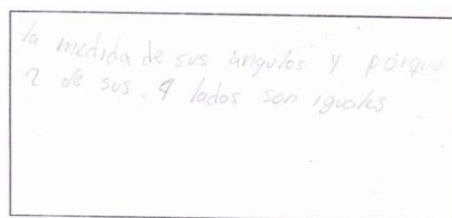 la medida de sus ángulos y porque
2 de sus 4 lados son iguales